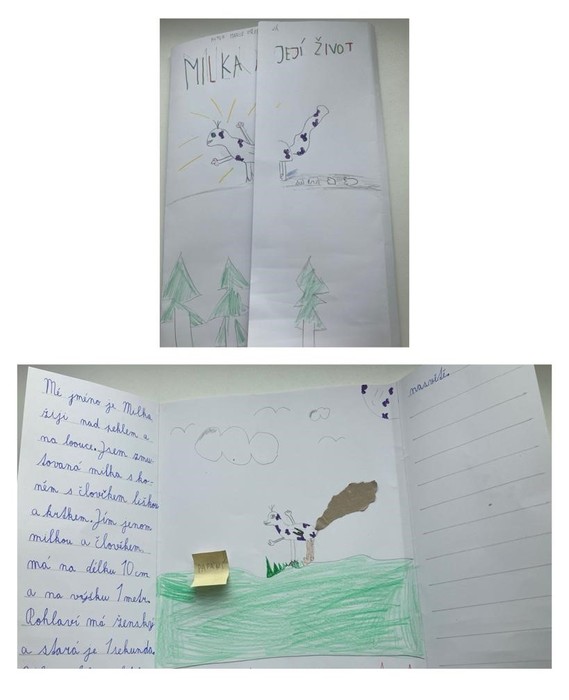 MILKA A JEJÍ ŽIVOT
Mé jméno je Milka
žiji nad peklem a
na loouce. Jsem zmu-
tovaná milka s ko-
něm s člověkem liškou
a krtkem. Jím jenom
milkou a člověkem.
má na délku 10cm
a na výšku 1metr.
Pohlaví má ženský
a stará je 1sekunda.
nasvětě.